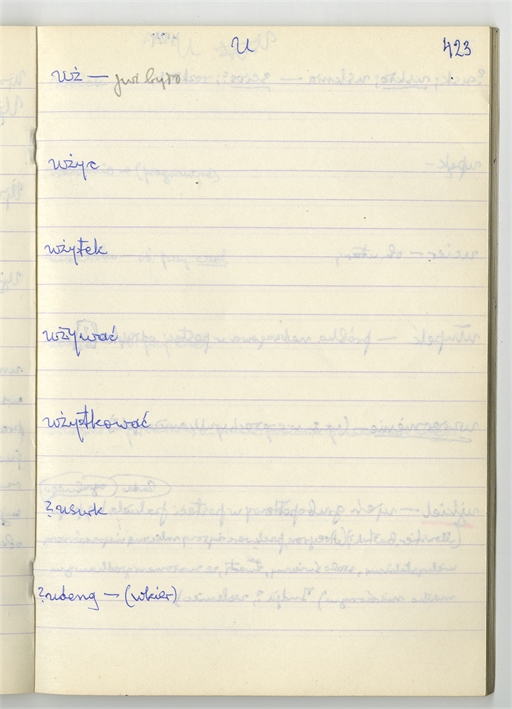 U 423
uż — już było
użyc
użytek
używać
użytkować
? usurk
? udeng — (wkier)